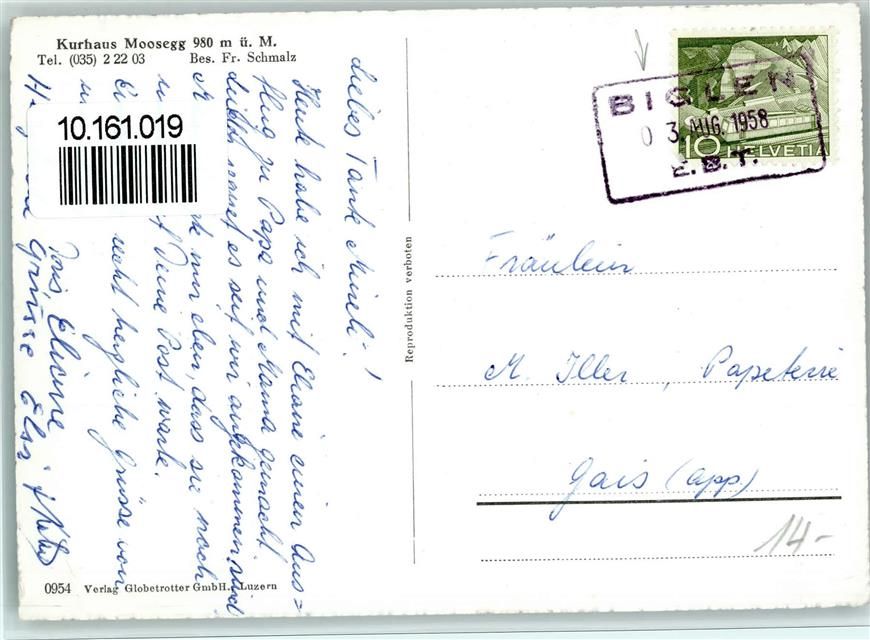 Kurhaus Moosegg 980 m ü. M.
Tel. (035) 2 22 03 Bes. Fr. Schmalz
10.161.019
Liebes Tante Mineli!
Heute habe ich mit Eliane einen Aus=
flug zu Papa und Mama gemacht.
es seit wir angekommen sind
mir eben, dass sie noch
f Deine Post warte.
recht herzliche Grüsse von
Eliane
Grüsse Elsi
Reproduktion verboten
0954 Verlag Globetrotter GmbH., Luzern
BIGLEN
03. AUG. 1958
E.B.T.
10 HELVETIA
Fräulein
M. Iller, Papeterie
Gais (App)
14-